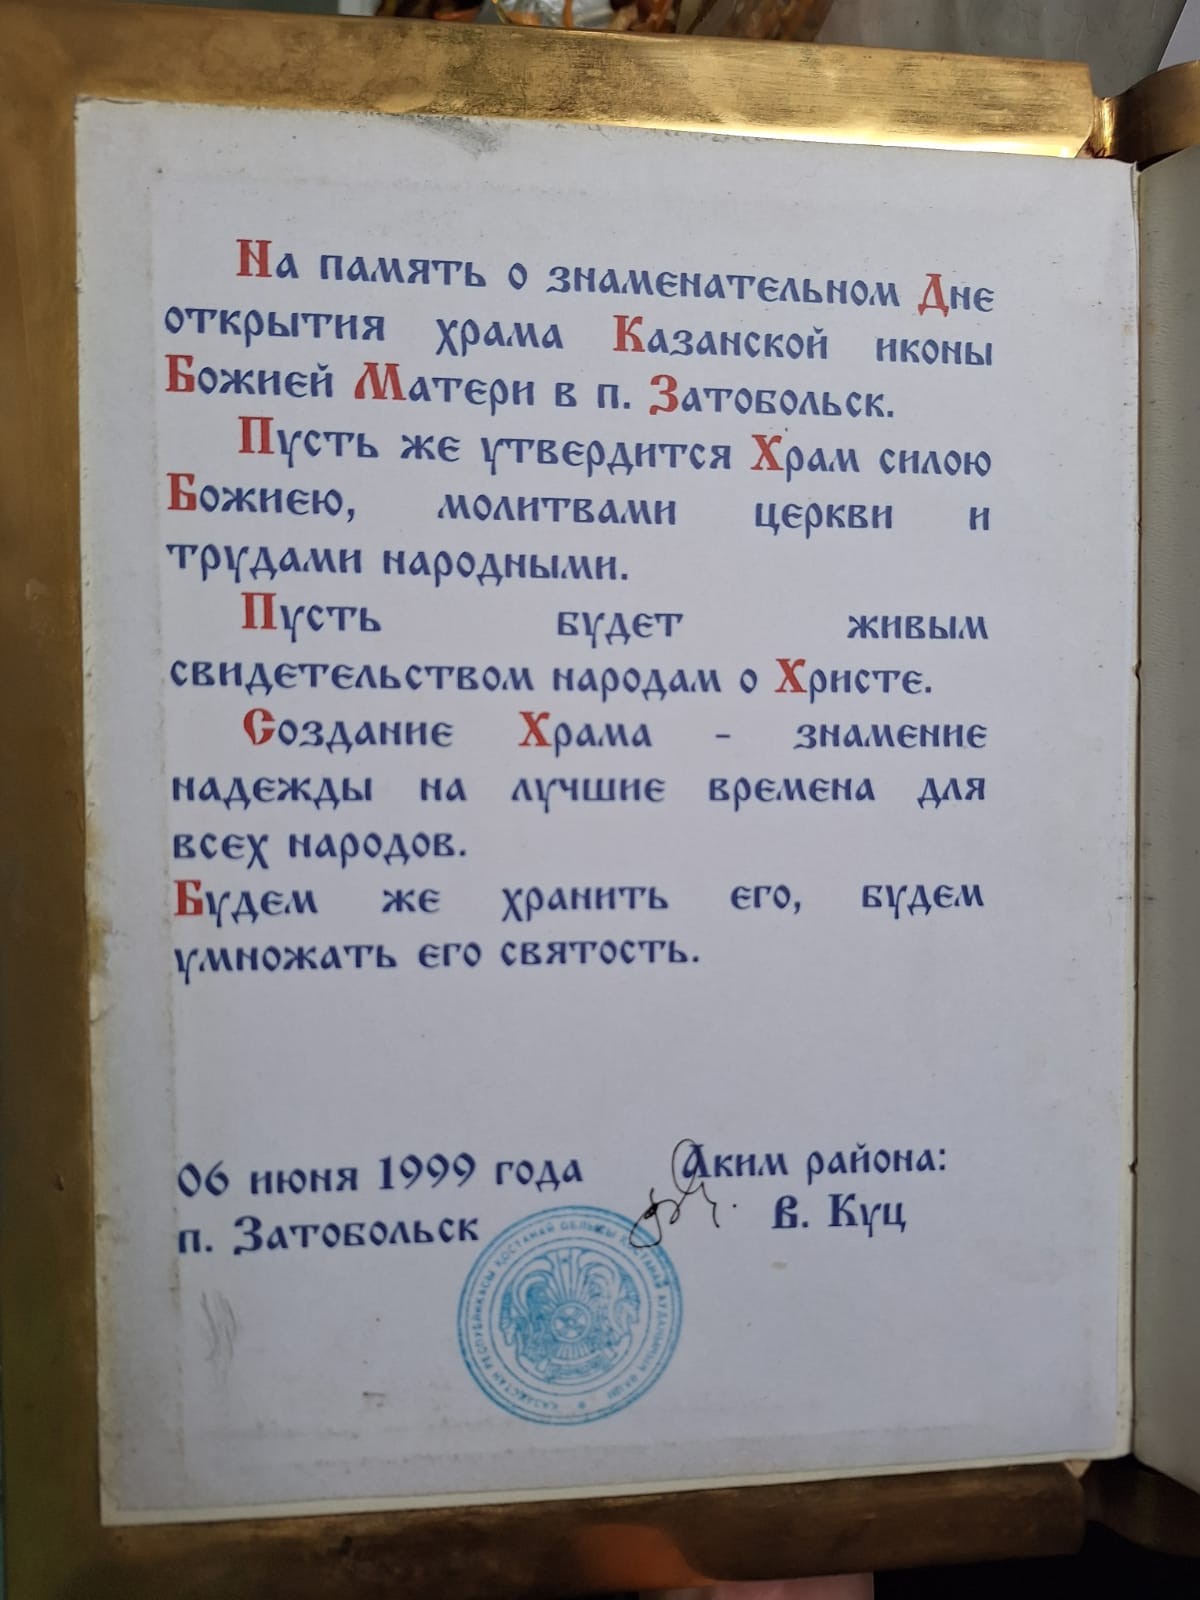 На память о знаменательном Дне
открытия храма Казанской иконы
Божией Матери в п. Затобольск.
Пусть же утвердится Храм силою
Божиею, молитвами церкви и
трудами народными.
Пусть будет живым
свидетельством народам о Христе.
Создание Храма - знамение
надежды на лучшие времена для
всех народов.
Будем же хранить его, будем
умножать его святость.
06 июня 1999 года
п. Затобольск
Аким района:
В. Куц
ҚАЗАҚСТАН РЕСПУБЛИКАСЫ ҚОСТАНАЙ ОБЛЫСЫ ҚОСТАНАЙ АУДАНЫНЫҢ ӘКІМІ